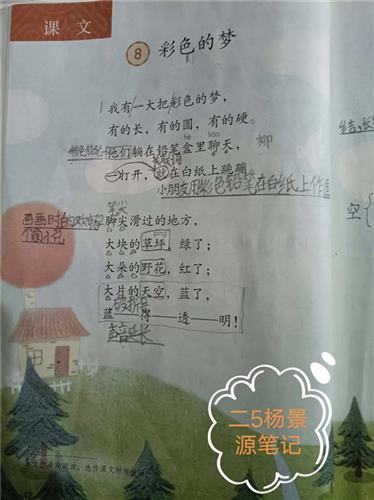 课文
8 彩色的梦
1 我有一大把彩色的梦，
有的长，有的圆，有的硬。
hé liáo
彩色铅笔 他们躺在铅笔盒里聊天， 柳
关联词
一打开，就在白纸上跳蹦。
小朋友用彩色铅笔在白纸上作画
笔尖
画画时的欢畅 2 脚尖滑过的地方，
píng
大块的草坪，绿了；
大朵的野花，红了；
大片的天空，蓝了，
破折号
蓝——得——透——明！
声音延长
空
二5杨景
源笔记